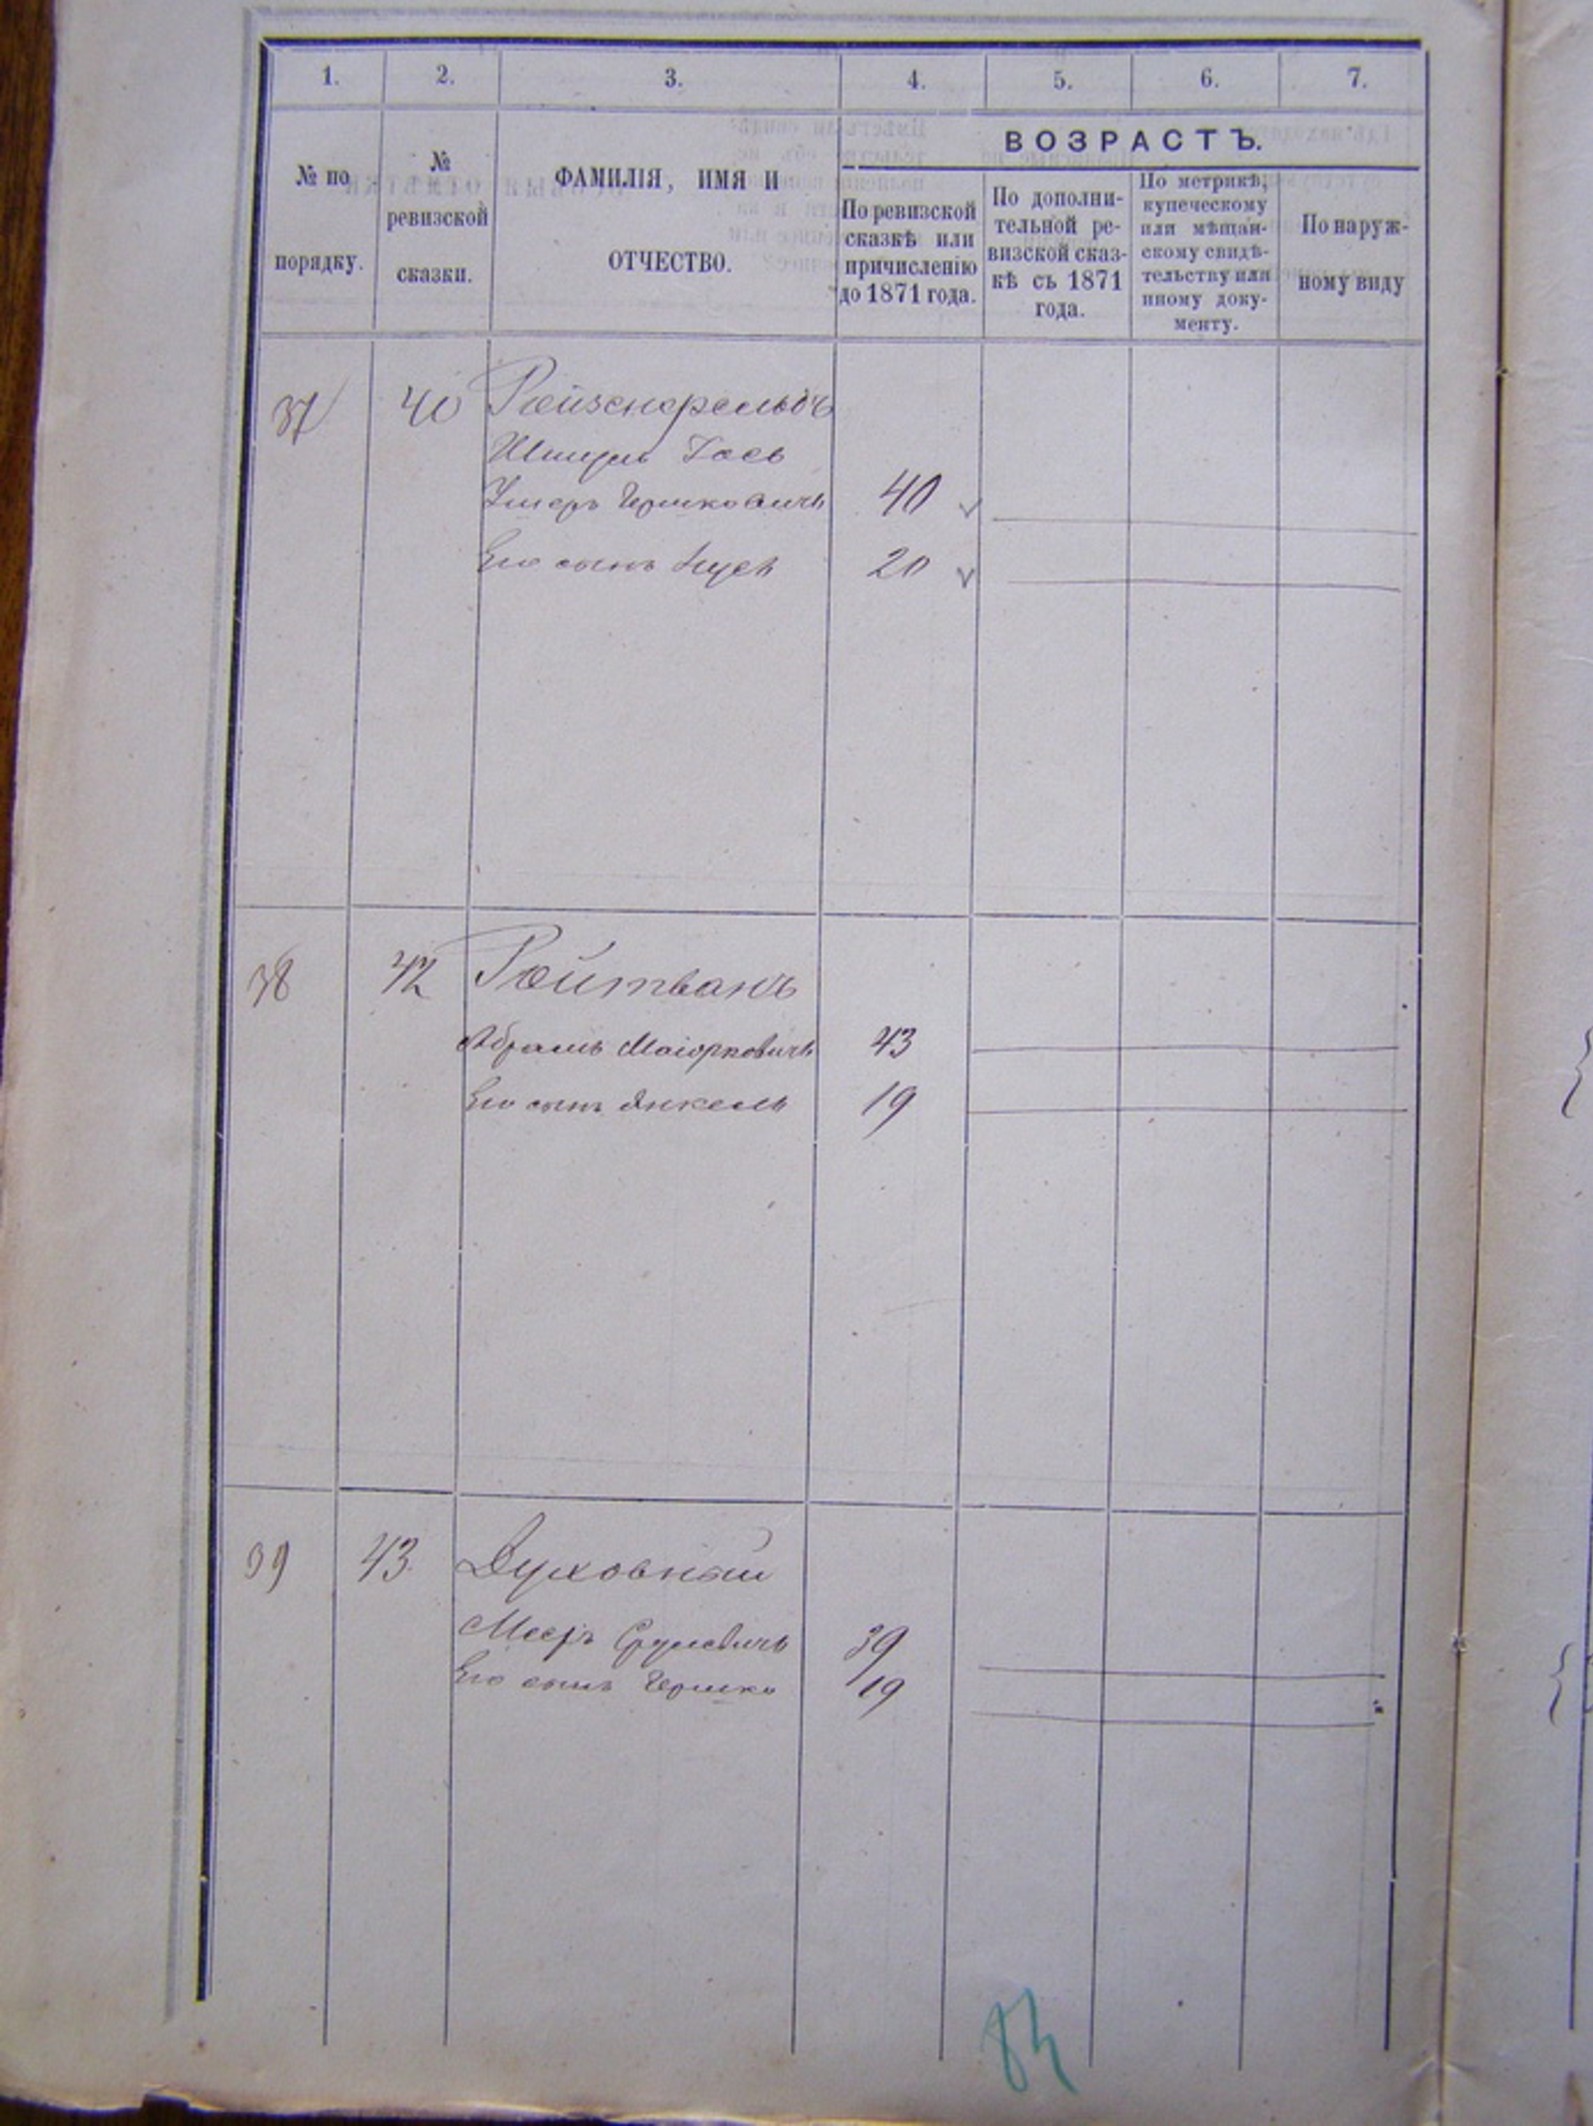 1. 2. 3. 4. 5. 6. 7.
№ по порядку.
№ ревизской сказки.
ФАМИЛІЯ, ИМЯ И
ОТЧЕСТВО.
ВОЗРАСТЪ.
По ревизской
сказкѣ или
причисленію
до 1871 года.
По дополни-
тельной ре-
визской сказ-
кѣ съ 1871
года.
По метрикѣ,
купеческому
или мѣщан-
скому свидѣ-
тельству или
иному доку-
менту.
По наруж-
ному виду
37 40 Ройзенфельдъ
Шмуль Iось
Ушеръ Гершковичъ 40
Его сынъ 20
38 42 Ройтванъ
Абрамъ Маіорковичъ 43
Его сынъ Янкель 19
39 43 Духовный
Мееръ Срулевичъ 39
Его сынъ Гершко 19